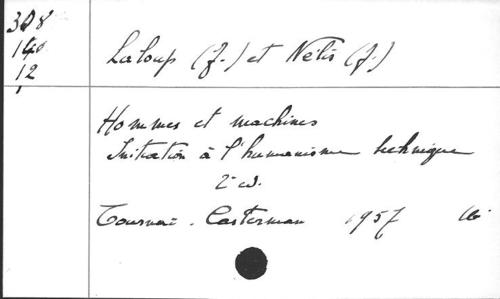 308
140
12
Laloup (J.) et Nélis (J.)
Hommes et machines
Initiation à l'humanisme technique
2e éd.
Tournai. Casterman 1957